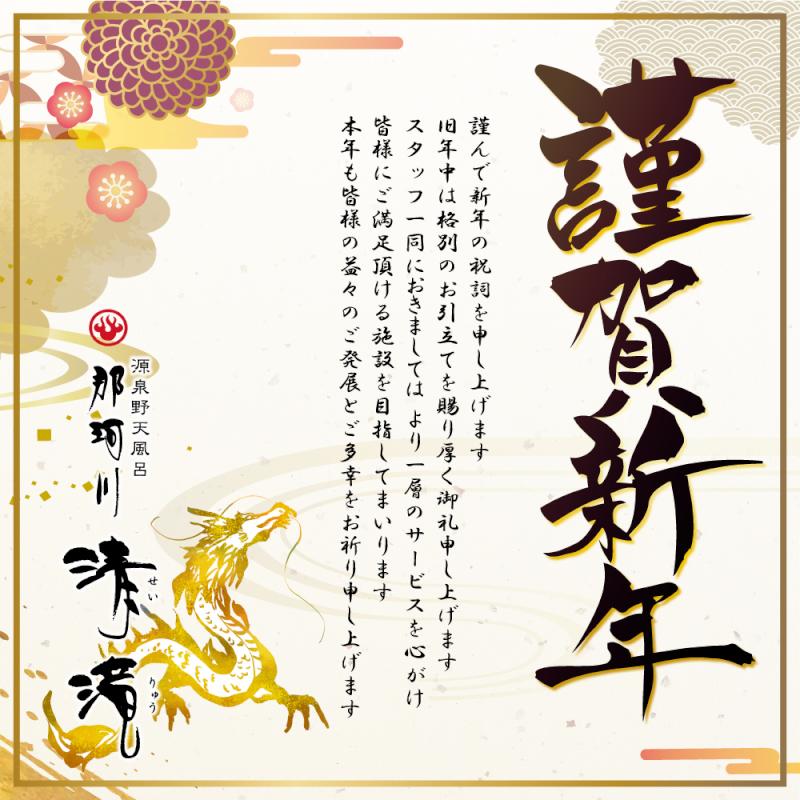 謹賀新年
謹んで新年の祝詞を申し上げます
旧年中は格別のお引立てを賜り厚く御礼申し上げます
スタッフ一同におきましては より一層のサービスを心がけ
皆様にご満足頂ける施設を目指してまいります
本年も皆様の益々のご発展とご多幸をお祈り申し上げます
源泉野天風呂
那珂川
清滝
せい
りゅう